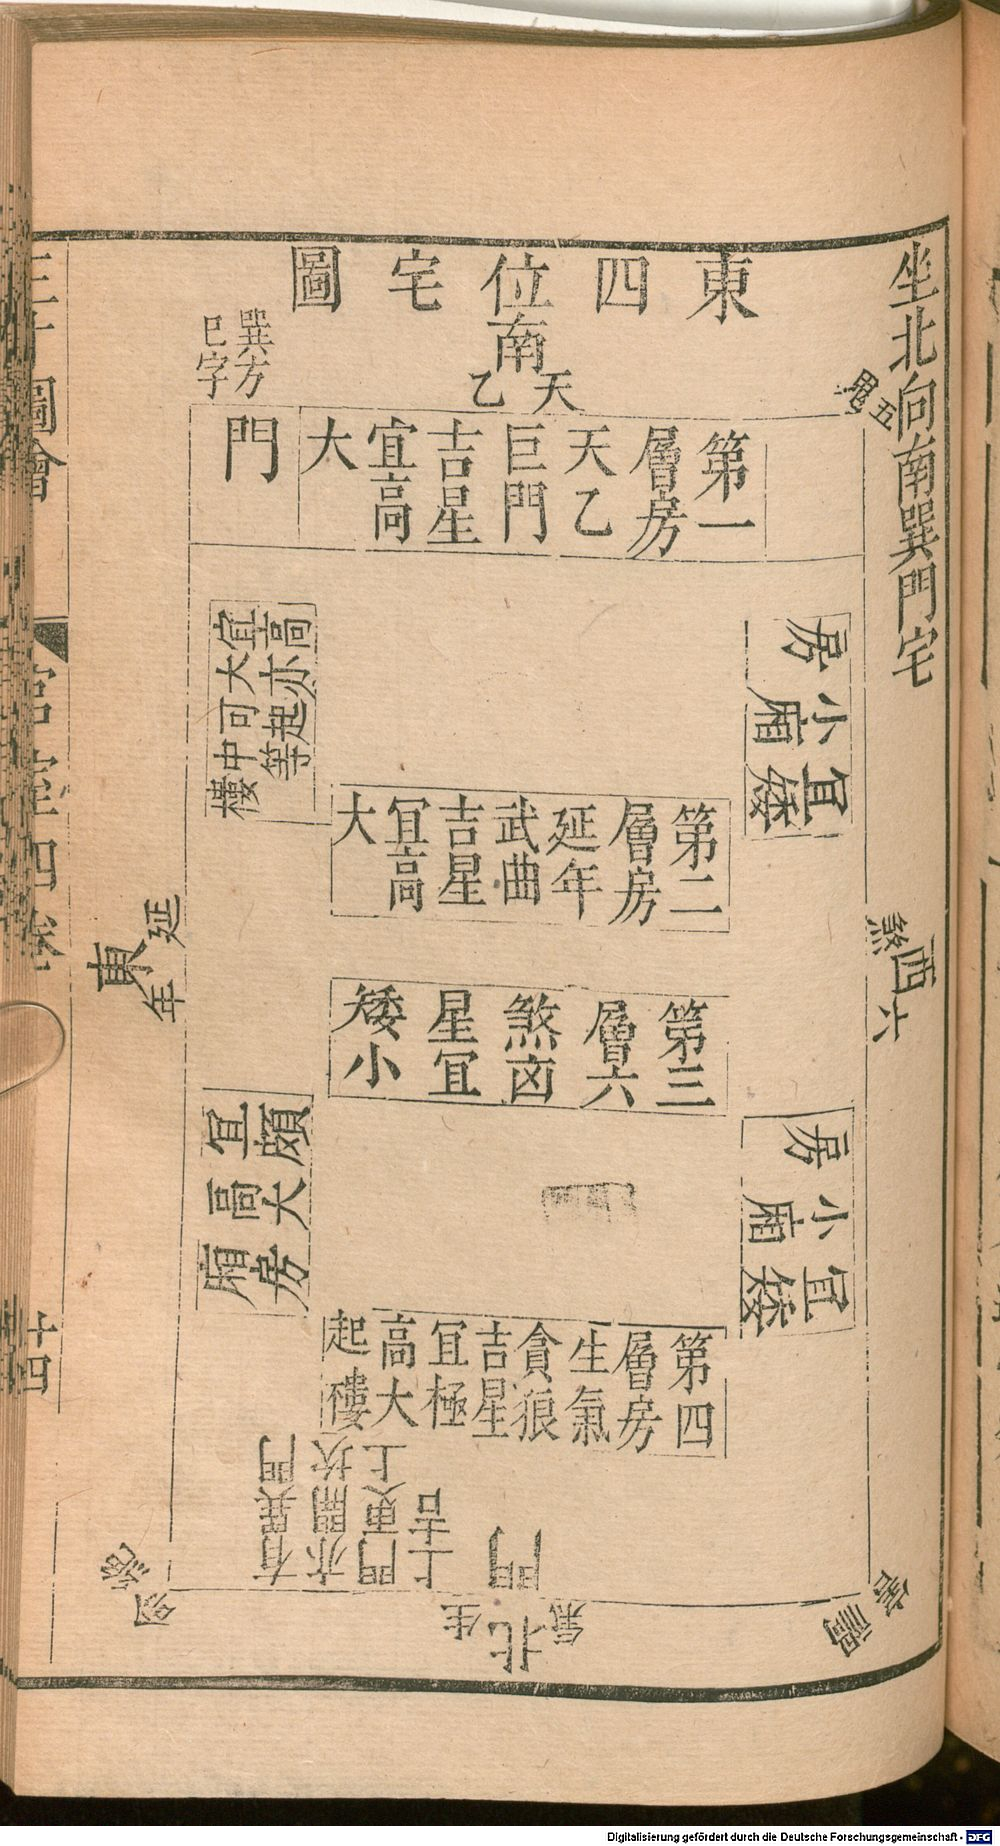 坐北向南巽門宅
東四位宅圖
南
天乙
五鬼
巽方
巳字
門
第一層房天乙巨門吉星宜高大
房小廂宜矮
高亦起等
宜大可中樓
第二層房延年武曲吉星宜高大
西六煞
東延年
第三層六煞凶星宜矮小
房小廂宜矮
頗大房
宜高廂
第四層房生氣貪狼吉星宜極高大起樓
有巽門
亦開坎
門更上
上吉
門
北生氣
禍害
三才圖會
宮室四卷
十四
Digitalisierung gefördert durch die Deutsche Forschungsgemeinschaft - DFG